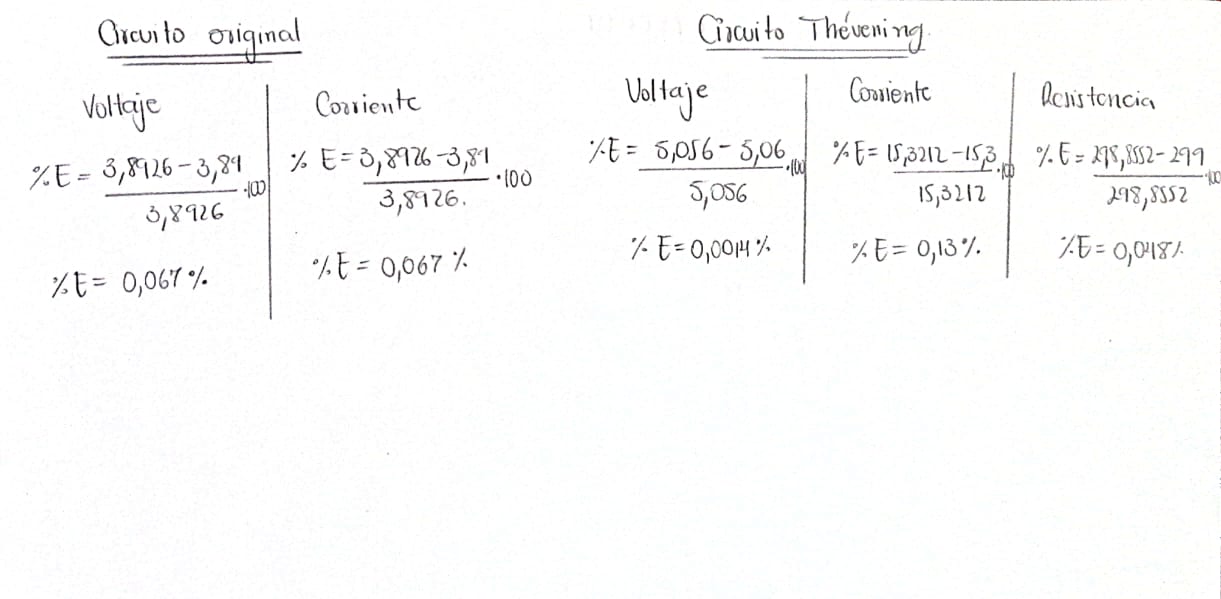 Circuito original
Voltaje
%E = 3,8926 - 3,89 / 3,8926 · 100
%E = 0,067 %
Corriente
% E = 3,8926 - 3,89 / 3,8926. · 100
%E = 0,067 %
Circuito Thévening.
Voltaje
%E = 5,056 - 5,06 / 5,056 · 100
% E = 0,0014 %
Corriente
%E = 15,3212 - 15,3 / 15,3212 · 100
%E = 0,13 %.
Resistencia
%E = 298,8552 - 299 / 298,8552 · 100
%E = 0,048 %